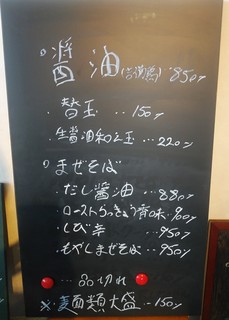 醤油(吉備鶏)・850y
・替玉 ‥150y
・生醤油和え玉 …220y
まぜそば
・だし醤油 ‥880y
・ローストらっきょう醤味 900y
・しび辛 …950y
・もやしまぜそば …950y
● …品切れ ●
※麺類大盛 …150y